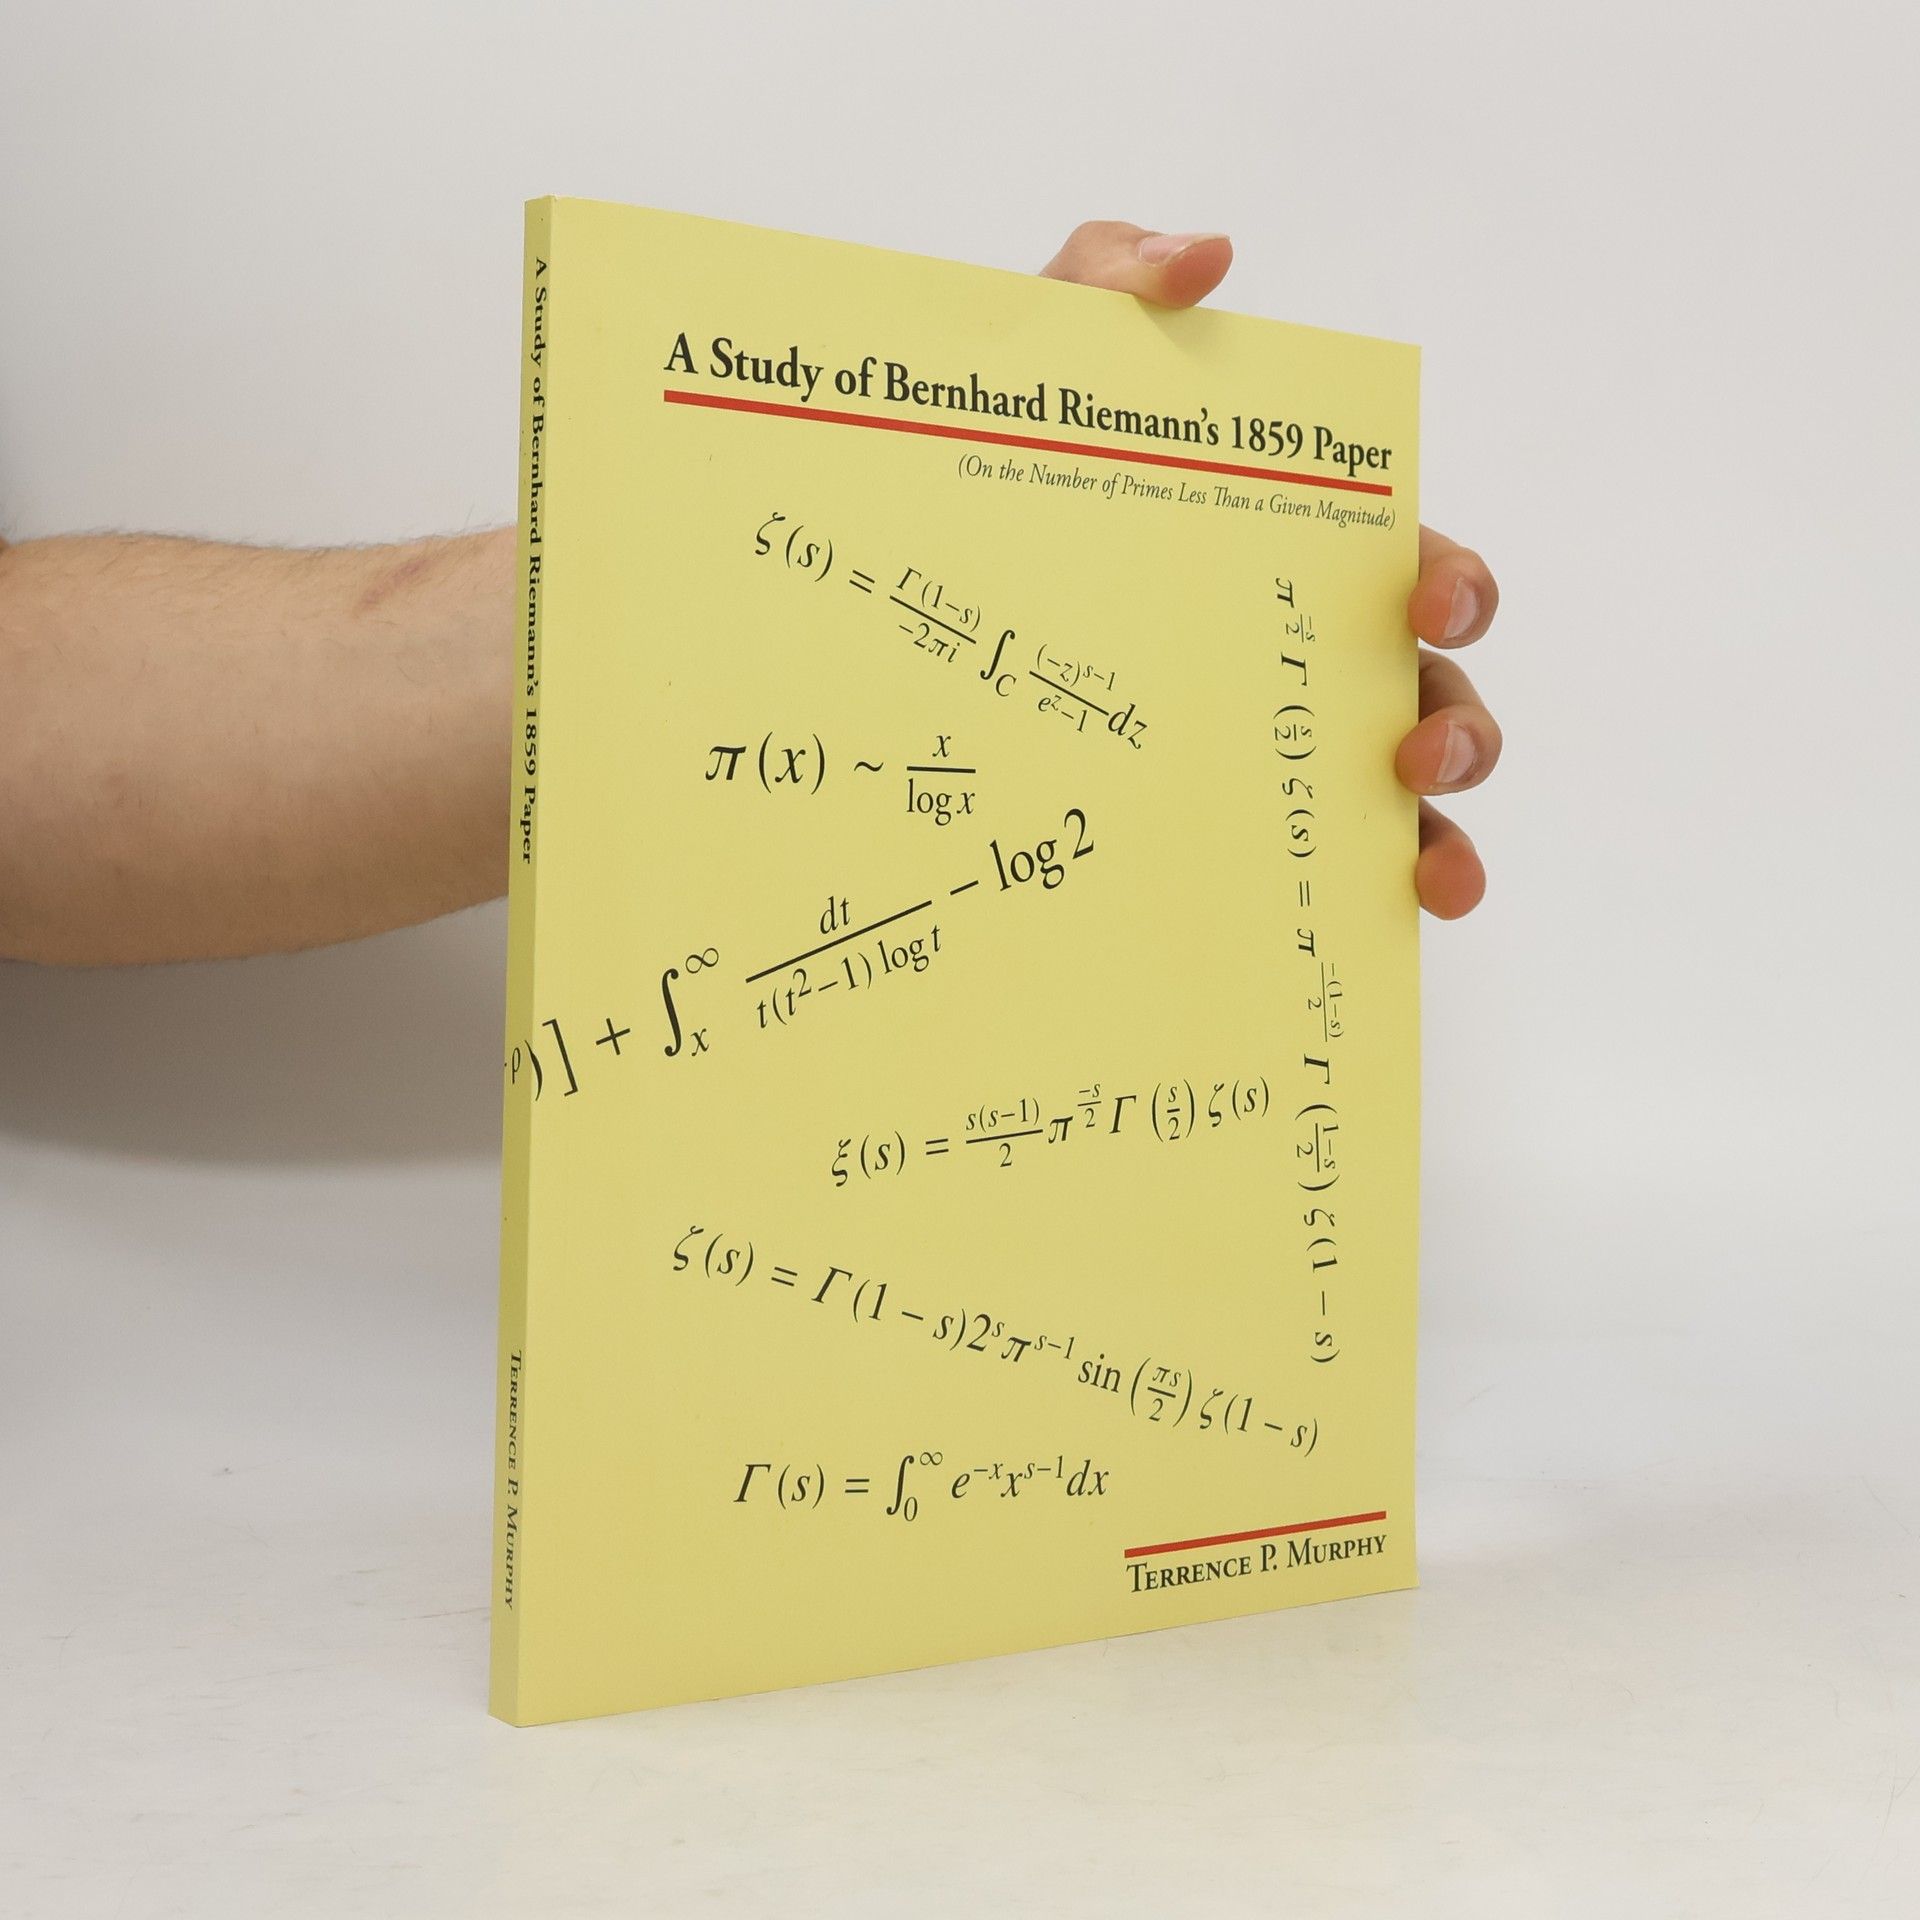 A Study of Bernhard Riemann's 1859 Paper
TERRENCE P. MURPHY
A Study of Bernhard Riemann's 1859 Paper
(On the Number of Primes Less Than a Given Magnitude)
ζ(s) = Γ(1−s)/−2πi ∫_C (−z)^{s−1}/e^z−1 dz
π(x) ~ x/log x
ρ)] + ∫_x^∞ dt/t(t²−1) log t − log 2
ξ(s) = s(s−1)/2 π^{−s/2} Γ(s/2) ζ(s)
ζ(s) = Γ(1 − s)2^s π^{s−1} sin(πs/2) ζ(1 − s)
Γ(s) = ∫_0^∞ e^{−x} x^{s−1} dx
π^{−s/2} Γ(s/2) ζ(s) = π^{−(1−s)/2} Γ(1−s/2) ζ(1 − s)
TERRENCE P. MURPHY